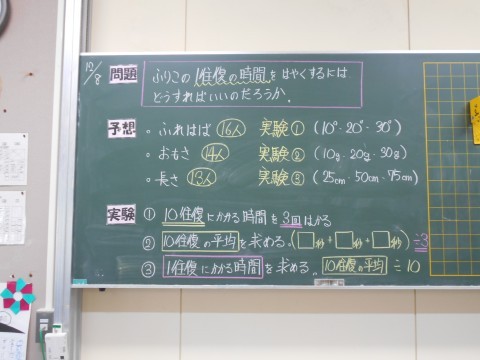 12/8
問題 ふりこの1往復の時間をはやくするには
どうすればいいのだろうか.
予想 ・ふれはば 16人 実験① (10°・20°・30°)
・おもさ 14人 実験② (10g・20g・30g)
・長さ 13人 実験③ (25cm・50cm・75cm)
実験 ① 10往復にかかる時間を3回はかる
② 10往復の平均を求める。(□秒+□秒+□秒)÷3
③ 1往復にかかる時間を求める。10往復の平均÷10